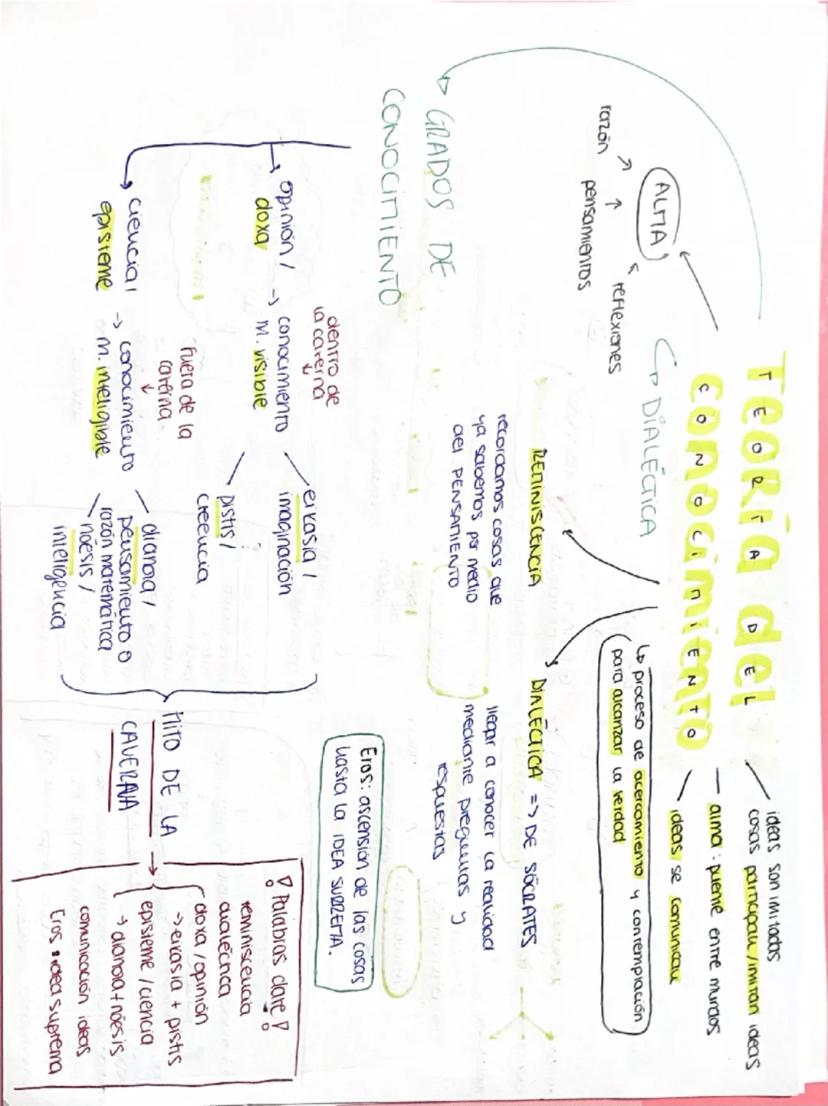 Teoría del
TEORIA DEL
conocimiento
CONOCIMIENTO
ideas son imitadas
cosas participan/imitan ideas
alma: puente entre mundos
ideas se comunican
ALMA
razón
pensamientos
reflexiones
↳ DIALÉCTICA
↳ proceso de acercamiento y contemplación
para alcanzar la verdad
REMINISCENCIA
recordamos cosas que
ya sabemos por medio
del PENSAMIENTO
DIALÉCTICA => DE SÓCRATES
llegar a conocer la realidad
mediante preguntas y
respuestas
GRADOS DE
CONOCIMIENTO
Eros: ascensión de las cosas
hasta la IDEA SUPREMA.
opinión /
doxa
→ conocimiento
M. visible
dentro de
la caverna
eikasia /
imaginación
pistis /
creencia
ciencia /
episteme
→ conocimiento
M. inteligible
Fuera de la
caverna
dianoia /
pensamiento o
razón matemática
nóesis /
inteligencia
MITO DE LA
CAVERNA
¡Palabras clave!
reminiscencia
dialéctica
doxa / opinión
→ eikasia + pistis
episteme / ciencia
→ dianoia + nóesis
comunicación ideas
Eros → idea suprema